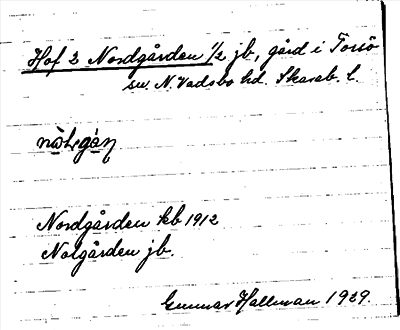 Hof 2 Nordgården 1/2 jb, gård i Torsö
sn. N. Vadsbo hd. Skarab. l.
Nordgården kb 1912
Nolgården jb.
Gunnar Hallman 1929.